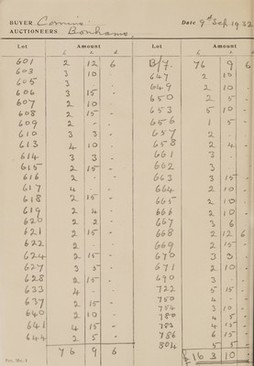 BUYER Comins Date 9th Sep 1932
AUCTIONEERS Bonhams
Lot Amount Lot Amount
601 2 12 6 B/f. 76 9 6
603 3 10 - 647 2 15 -
605 3 - - 649 2 10 -
606 3 15 - 650 2 5 -
607 2 10 - 653 5 10 -
608 2 15 - 656 1 5 -
609 2 - - 657 2 - -
610 3 3 - 658 2 4 -
613 4 10 - 661 3 - -
614 3 3 - 662 3 - -
615 2 15 - 663 3 15 -
616 2 - - 664 2 10 -
617 4 - - 665 2 10 -
618 2 15 - 666 2 10 -
619 2 4 - 667 3 6 -
620 2 2 - 668 2 12 6
621 2 15 - 669 2 15 -
622 2 - - 670 3 3 -
624 2 15 - 671 2 10 -
627 3 5 - 690 3 - -
628 2 15 - 722 5 15 -
633 4 - - 750 4 - -
637 2 15 - 754 3 10 -
640 2 10 - 780 4 5 -
641 4 15 - 782 4 15 -
644 2 5 - 786 6 15 -
76 9 6 804 5 5 -
£163 10 -